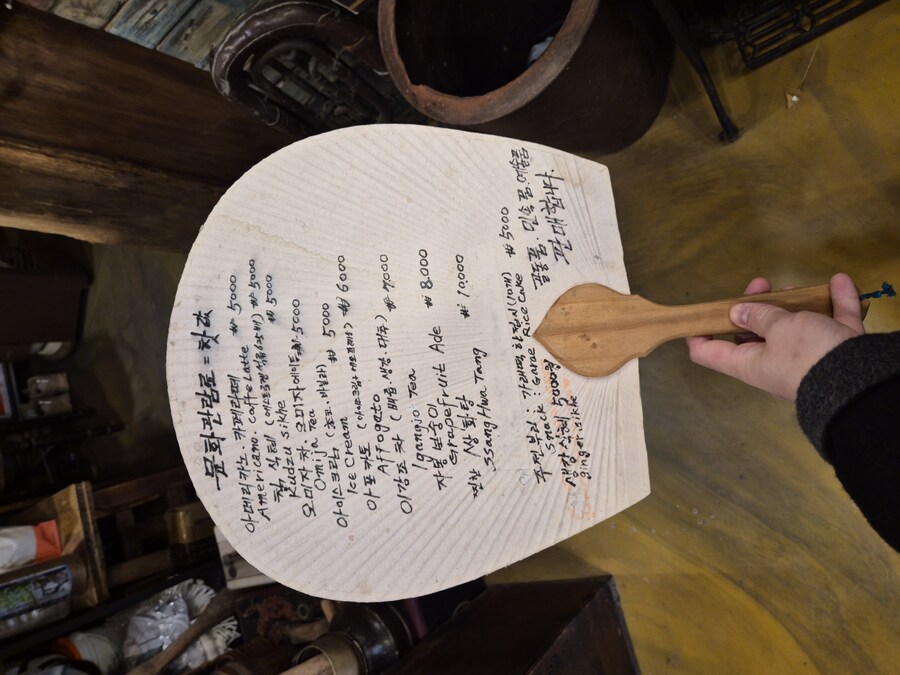 문화관람료 = 찻값
아메리카노. 카페라떼 ₩ 5000
Americano. Caffe Latte
칡 식혜 (에스트로겐 석류 625배) ₩ 5000
Kudzu sikhe ₩ 5000
오미자 차. 오미자에이드 ₩ 5000
Omija Tea
아이스크림 (초코. 바닐라) ₩ 5000
Ice Cream
아포카토 (아이스크림+에스프레소) ₩ 6000
Affogato
이강조 차 (배즙. 생강. 대추) ₩ 7.000
Igangjo Tea
자몽 보숭이 ₩ 8.000
Grapefruit Ade
찐한 쌍화탕 ₩ 10.000
SsangHwa Tang
주전부리 : 가래떡 한접시 (10개) ₩ 5000
Snack : Garae Rice Cake
생강 식혜 5000원
ginger. sikhe
골동품. 민속품. 예술품
판매합니다.